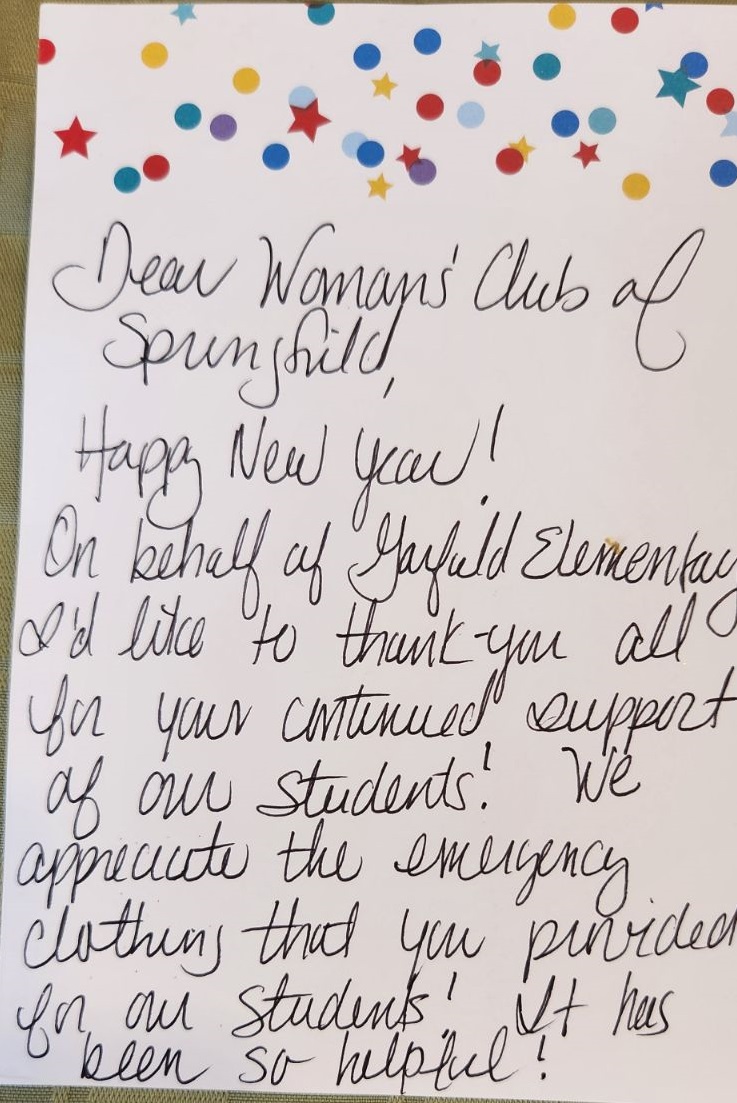 Dear Woman's Club of
Springfield,
Happy New Year!
On behalf of Garfield Elementary
I'd like to thank-you all
for your continued support
of our students! We
appreciate the emergency
clothing that you provided
for our students! It has
been so helpful!